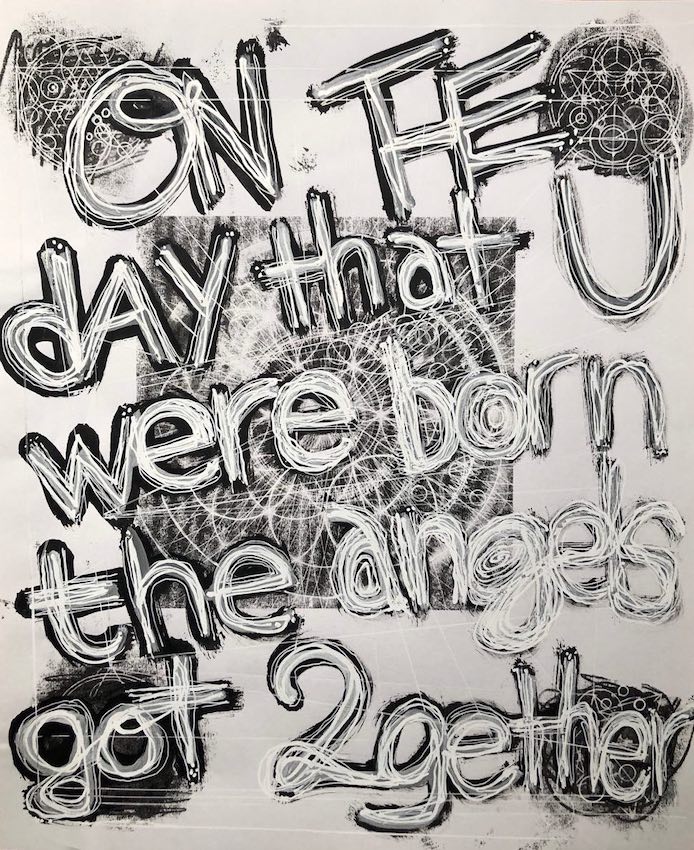 ON THE
dAY that U
were born
the angels
got 2gether